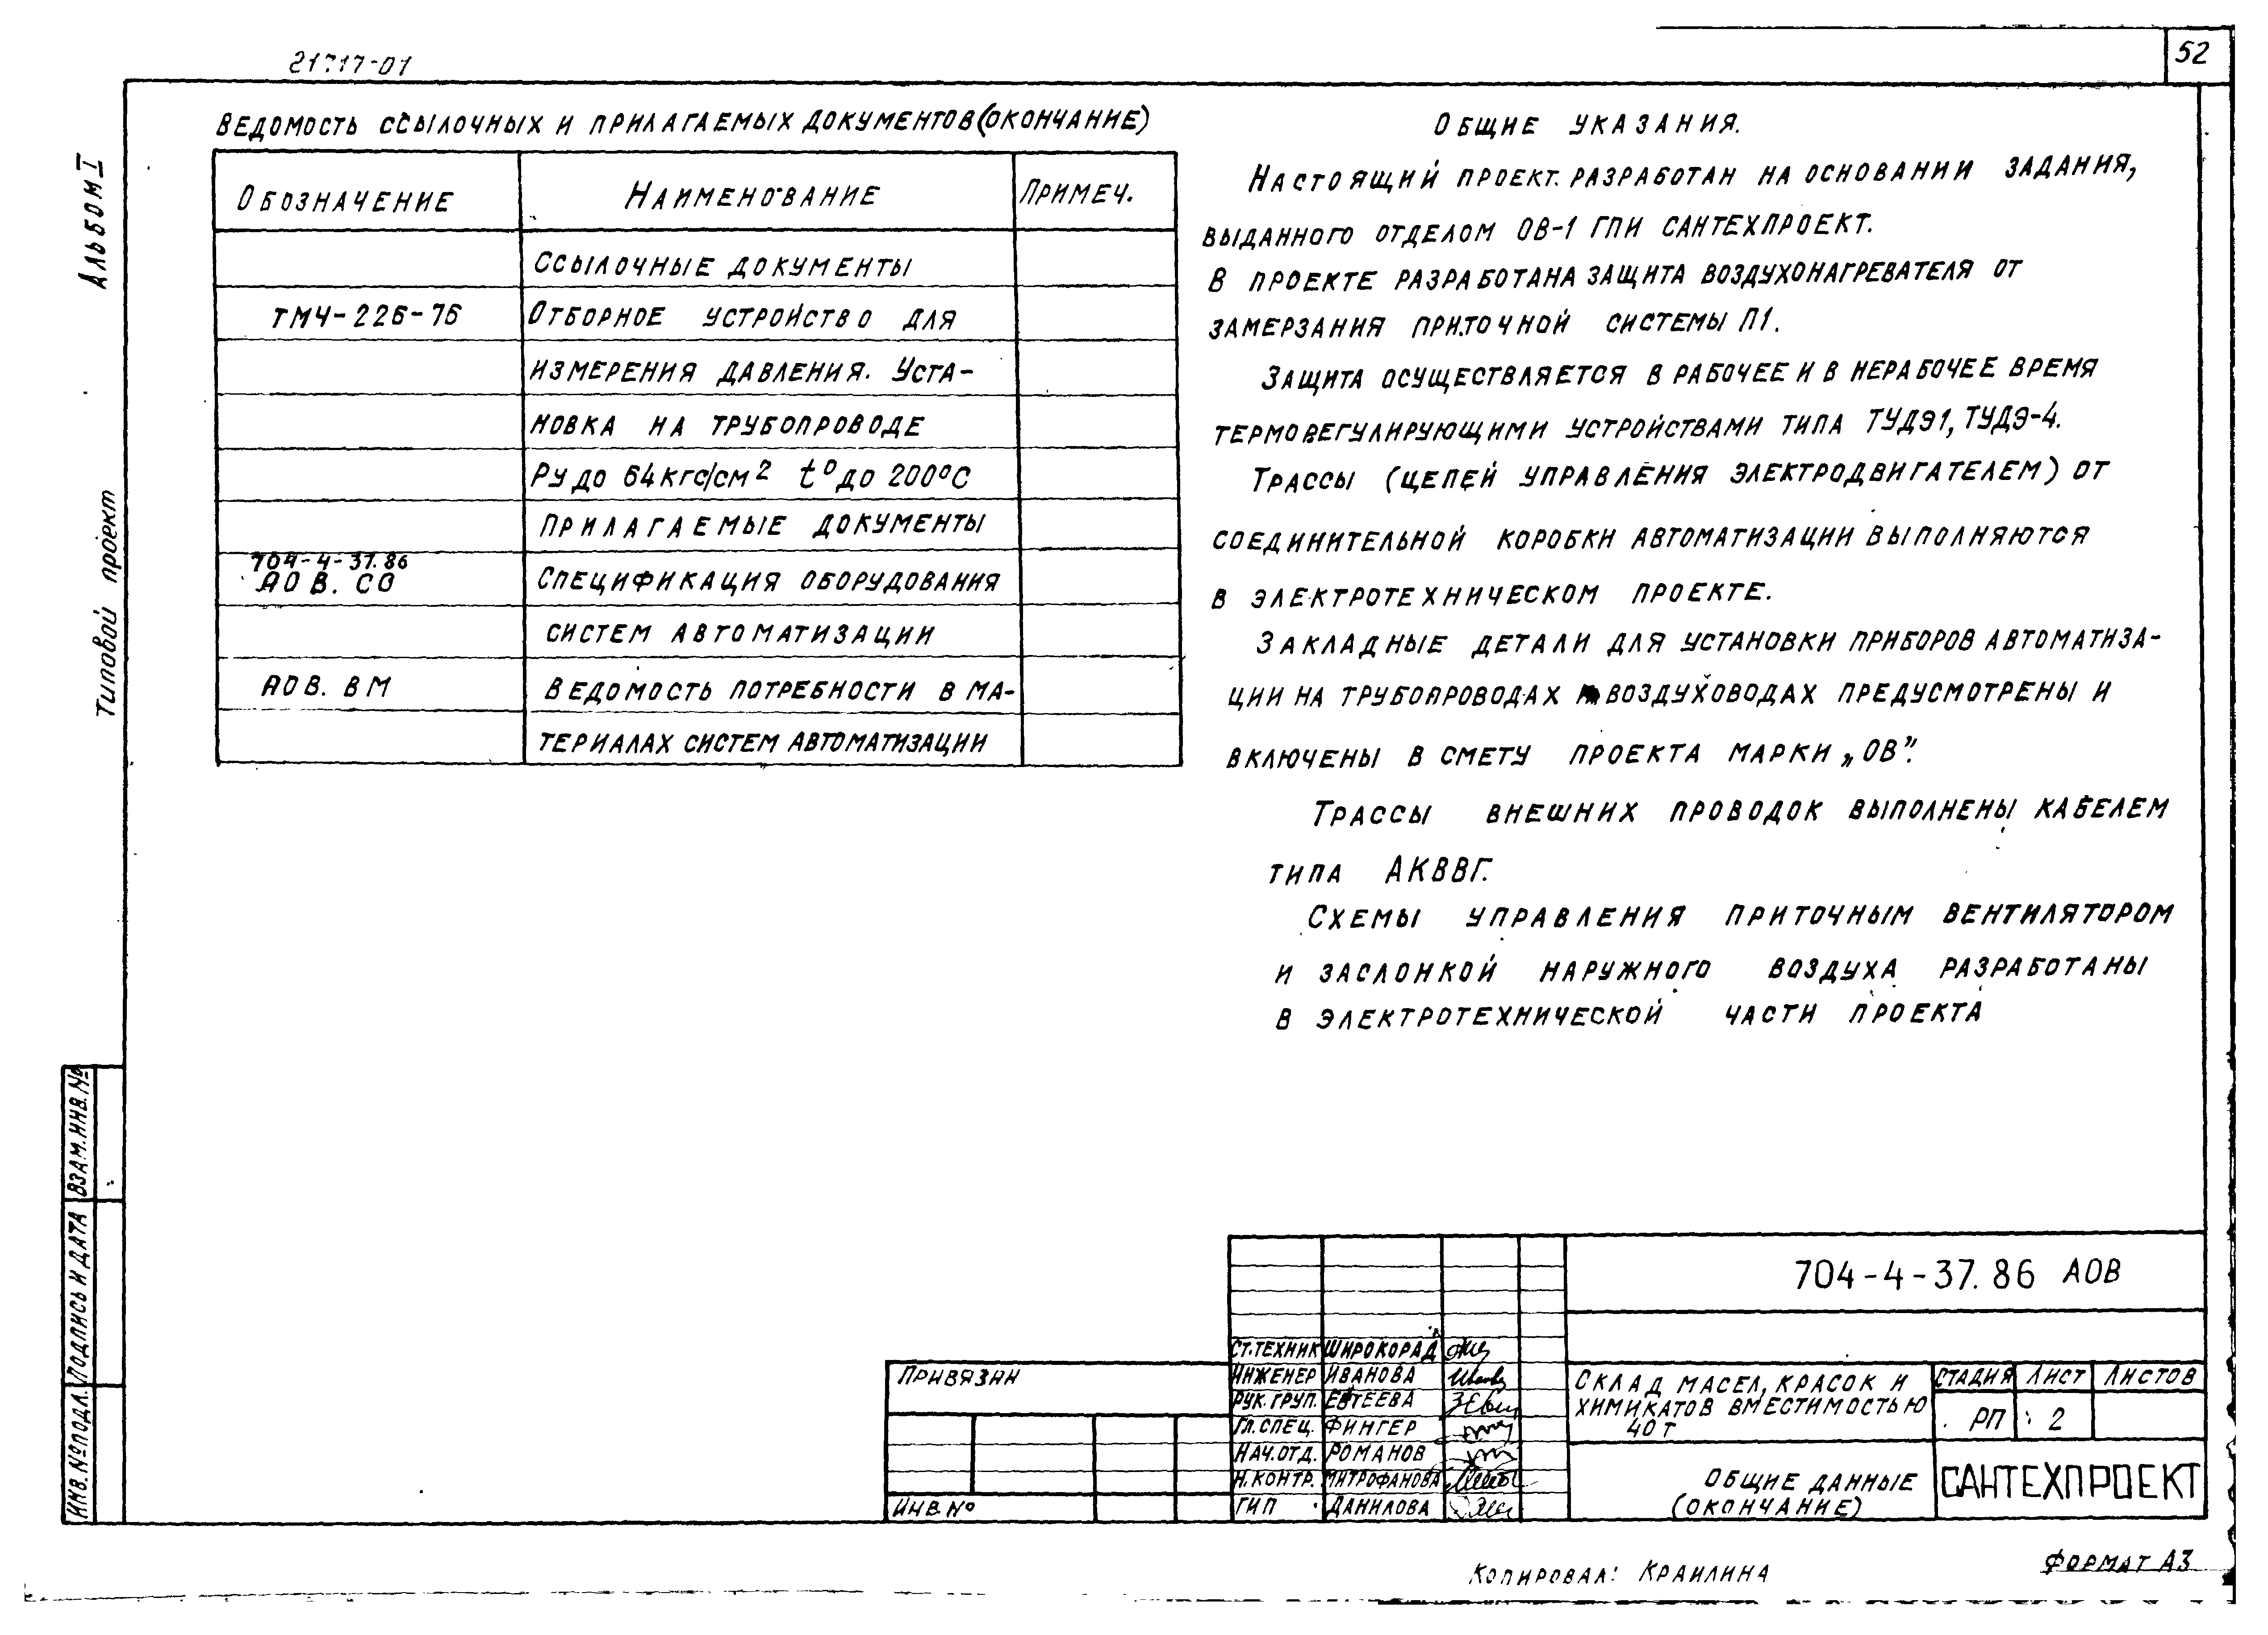 21717-01
52
Альбом I
Типовой проект
Ведомость ссылочных и прилагаемых документов (окончание)
Обозначение Наименование Примеч.
Ссылочные документы
ТМ4-226-76 Отборное устройство для
измерения давления. Уста-
новка на трубопроводе
Ру до 64кгс/см2 t° до 200°С
Прилагаемые документы
704-4-37.86
АОВ. СО Спецификация оборудования
систем автоматизации
АОВ. ВМ Ведомость потребности в ма-
териалах систем автоматизации
Общие указания.
Настоящий проект. разработан на основании задания,
выданного отделом ОВ-1 ГПИ Сантехпроект.
В проекте разработана защита воздухонагревателя от
замерзания приточной системы П1.
Защита осуществляется в рабочее и в нерабочее время
термовегулирующими устройствами типа ТУДЭ1, ТУДЭ-4.
Трассы (цепей управления электродвигателем) от
соединительной коробки автоматизации выполняются
в электротехническом проекте.
Закладные детали для установки приборов автоматиза-
ции на трубопроводах и воздуховодах предусмотрены и
включены в смету проекта марки „ОВ".
Трассы внешних проводок выполнены кабелем
типа АКВВГ.
Схемы управления приточным вентилятором
и заслонкой наружного воздуха разработаны
в электротехнической части проекта
Взам.инв.№
Подпись и дата
Инв.№подл.
Привязан
Инв №
704-4-37.86 АОВ
Ст.техник Широкорад
Инженер Иванова
Рук.груп. Евтеева
Гл.спец. Фингер
Нач.отд. Романов
Н.контр. Митрофанова
ГИП Данилова
Склад масел, красок и
химикатов вместимостью
40т
Стадия Лист Листов
РП 2
Общие данные
(окончание)
САНТЕХПРОЕКТ
Копировал: Краилина
Формат А3